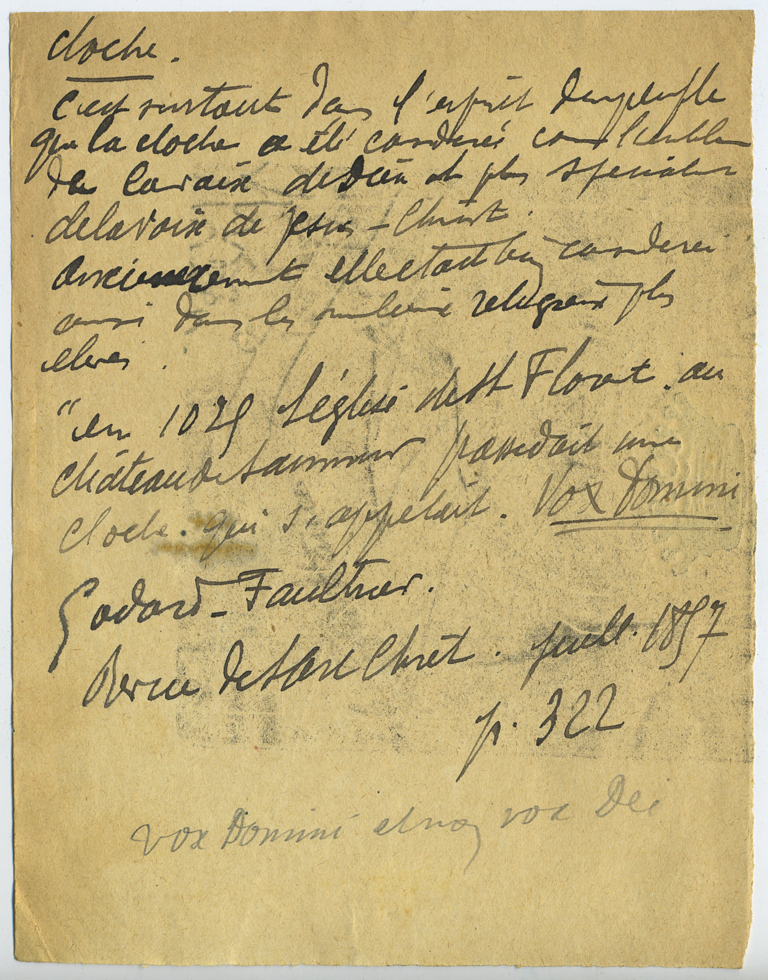 cloche.
c'est surtout dans l'esprit du peuple
que la cloche a été considérée comme l'emblème
de la voix de Dieu et plus spécialem
de la voix de Jesus-Christ.
Anciennement elle était bien considérée
ainsi dans les milieux religieux plus
élevés.
"en 1029 l'église de St Florent au
château de Saumur possédait une
cloche qui s'appelait. Vox Domini
Godard-Faultrier.
Revue de l'art Chrét. juill. 1857
p. 322
vox Domini et non vox Dei